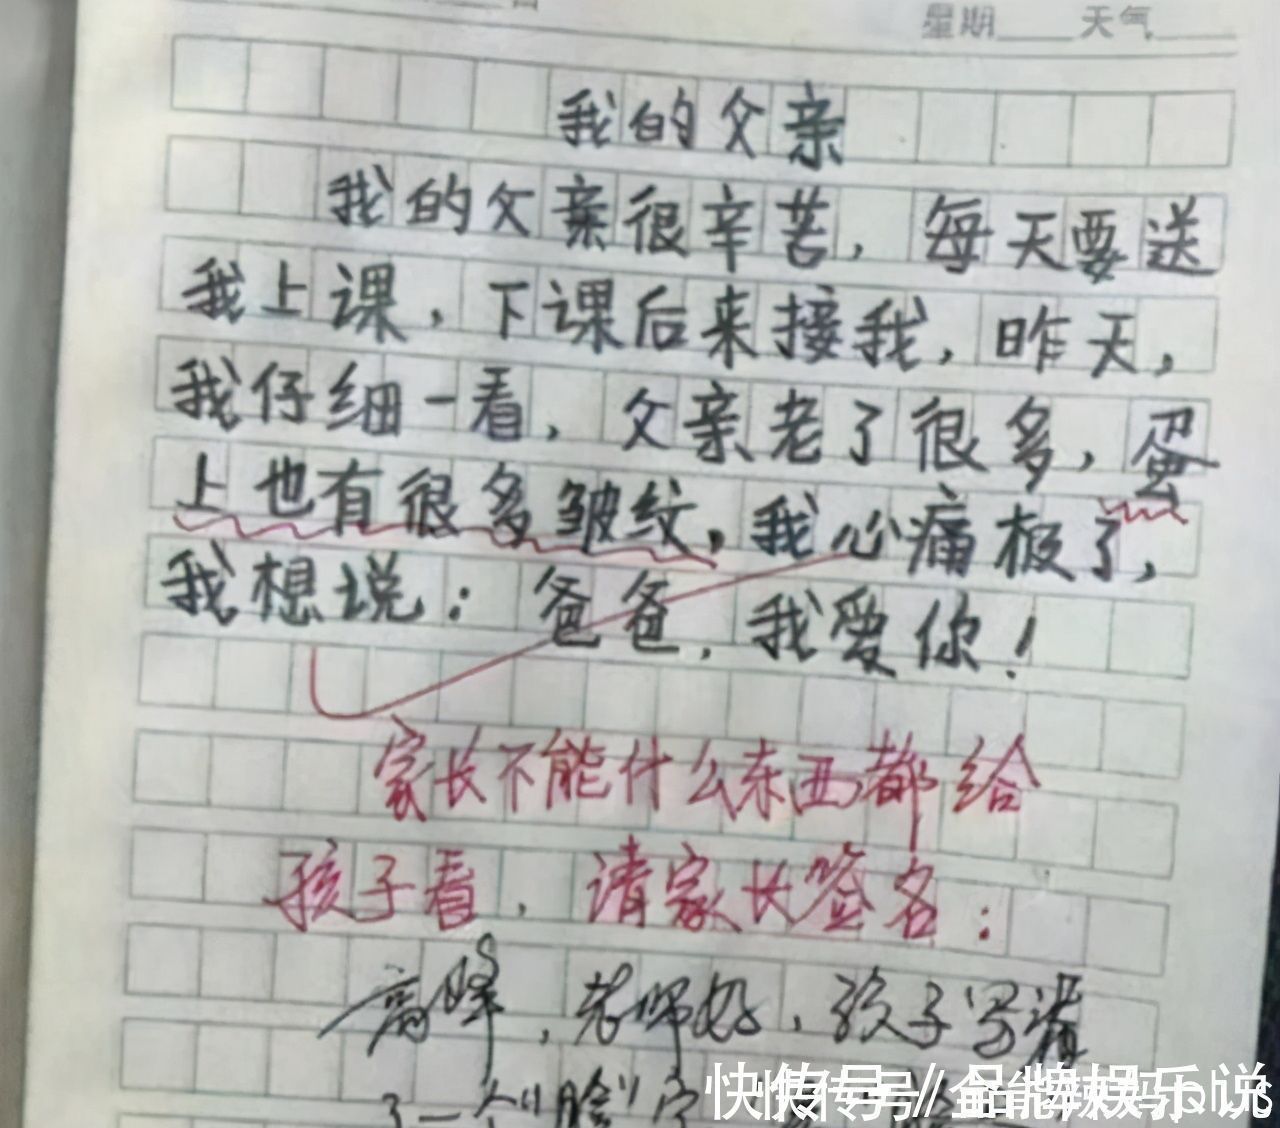 星期____天气____
我的父亲
我的父亲很辛苦，每天要送
我上课，下课后来接我，昨天，
我仔细一看，父亲老了很多，蛋
上也有很多皱纹，我心痛极了，
我想说：爸爸，我爱你！
家长不能什么东西都给
孩子看，请家长签名：
高峰，老师好，孩子写错
了一个"脸"字
快传号/品牌娱乐说